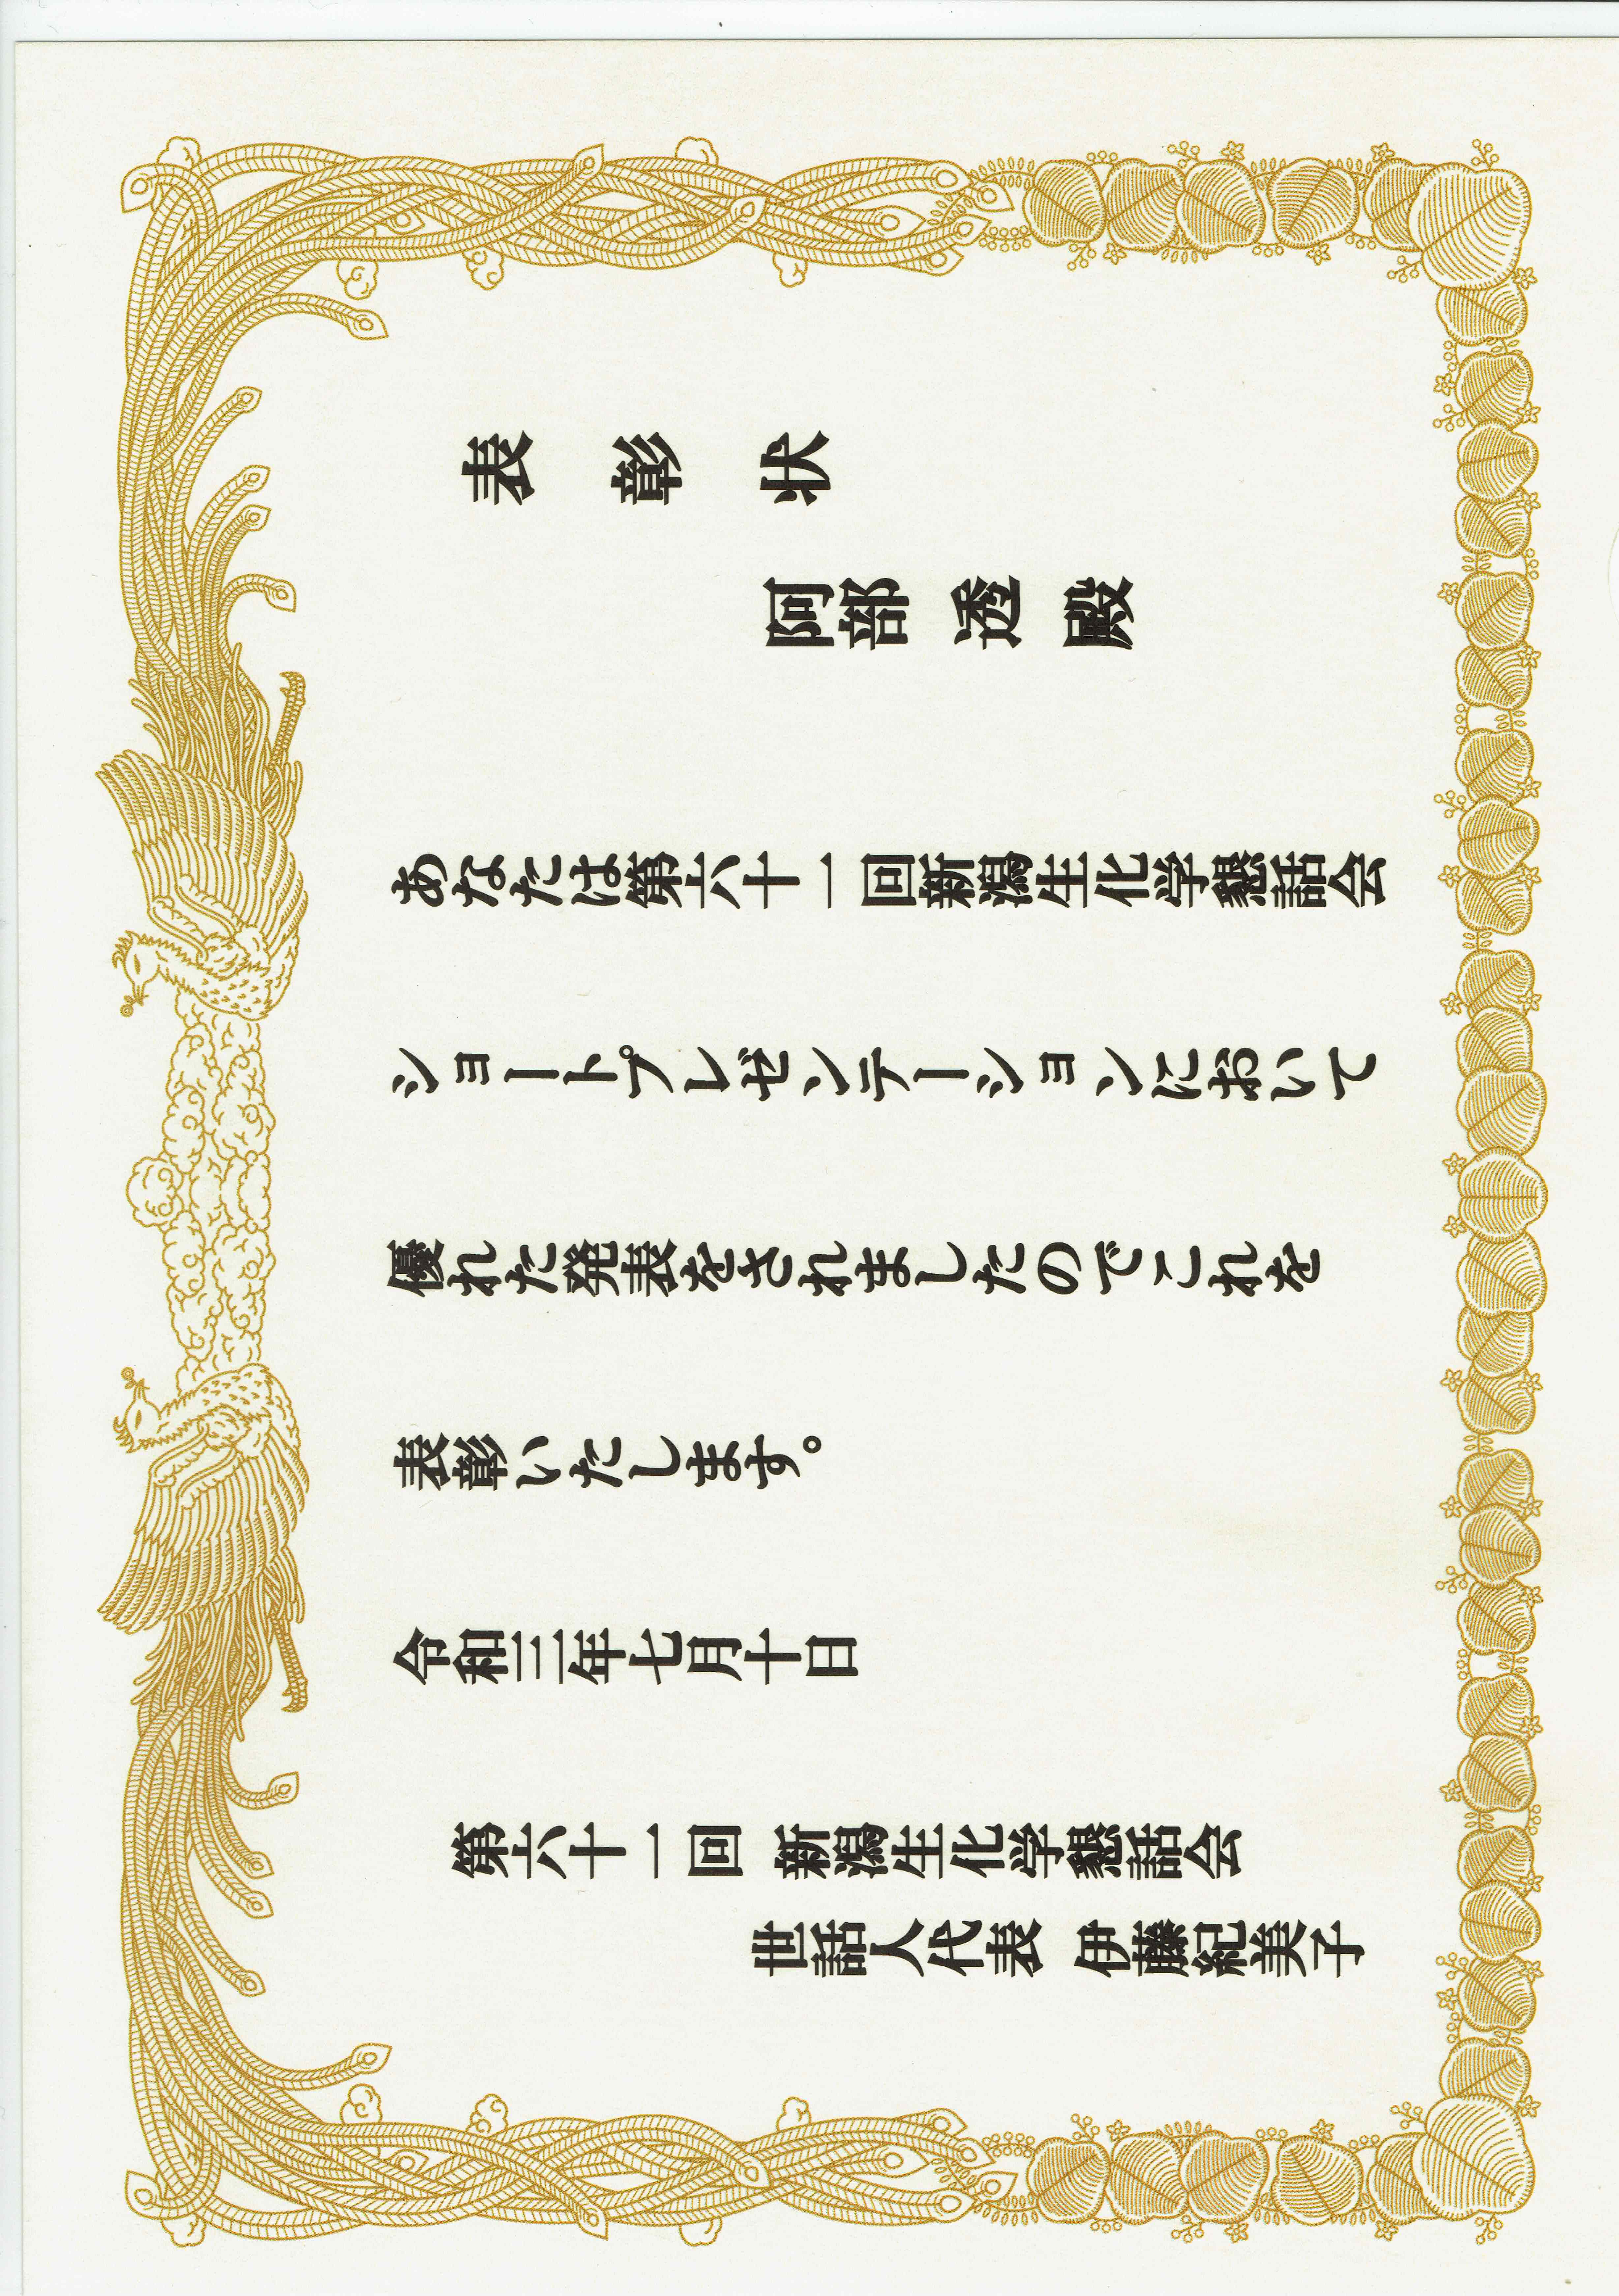 表彰状
阿部透殿
あなたは第六十一回新潟生化学懇話会
ショートプレゼンテーションにおいて
優れた発表をされましたのでこれを
表彰いたします。
令和三年七月十日
第六十一回 新潟生化学懇話会
世話人代表 伊藤紀美子